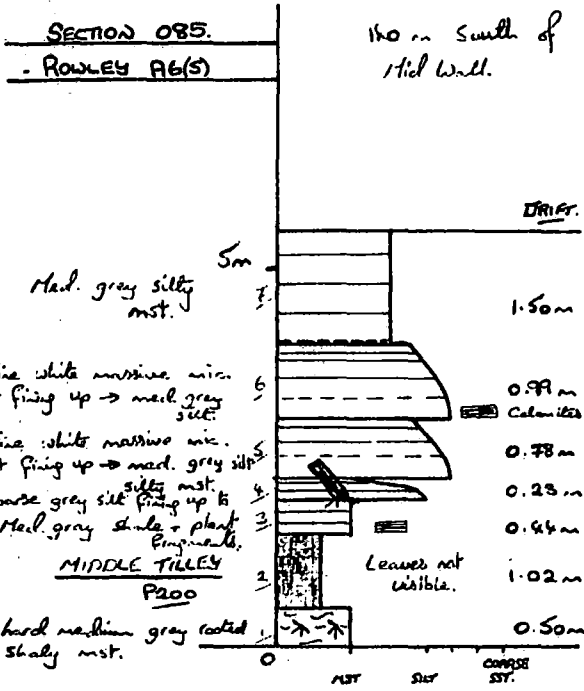 SECTION 085.
- ROWLEY A6(5)
180 m South of
Mid Wall.
DRIFT.
5m
Med. grey silty
mst.
7
1.50m
fine white massive mic.
fining up → med. grey
silt.
6
0.99m
Calamites
fine white massive mic.
fining up → med. grey silt
silty mst.
5
0.78m
coarse grey silt fining up to
4
0.23m
Med. grey shale + plant
fragments.
3
0.44m
MIDDLE TILLEY
P200
2
Leaves not
visible.
1.02m
hard medium grey rooted
shaly mst.
1
0.50m
0
MST SILT COARSE
SST.